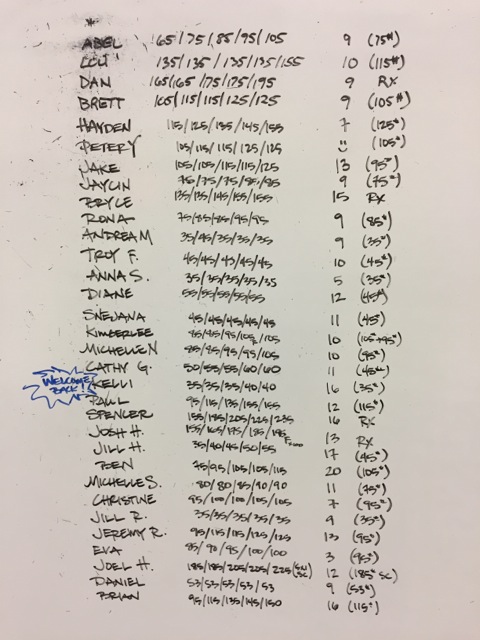 *
ABEL 65/75/85/95/105 9 (75#)
LOU 135/135/135/135/155 10 (115#)
DAN 165/165/175/175/195 9 RX
BRETT 105/115/115/125/125 9 (105#)
HAYDEN 115/125/135/145/155 7 (125#)
PETER Y 105/115/115/125/125 (105#)
JAKE 105/105/115/115/125 13 (95#)
JAYLIN 75/75/75/85/85 9 (75#)
BRYCE 135/135/145/155/155 15 RX
RONA 75/85/85/95/95 9 (85#)
ANDREA M 35/45/35/35/35 9 (35#)
TROY F. 45/45/43/45/45 10 (45#)
ANNA S. 35/35/35/35/35 5 (35#)
DIANE 55/55/55/55/55 12 (45#)
SNEJANA 45/45/45/45/45 11 (45#)
KIMBERLEE 85/95/95/105/105 10 (105→95#)
MICHELLE N 85/85/95/95/105 10 (95#)
CATHY G. 50/55/55/60/60 11 (45#)
WELCOME BACK! KELLI 35/35/35/40/40 16 (35#)
PAUL 95/115/135/155/155 12 (115#)
SPENCER 155/185/205/225/235 16 RX
JOSH H. 155/165/175/185/195 13 RX
JILL H. 35/40/45/50/55 17 (45#)
BEN 75/95/105/105/115 20 (105#)
MICHELLE S. 80/80/85/90/90 11 (75#)
CHRISTINE 95/100/100/105/105 7 (95#)
JILL R. 35/35/35/35/35 9 (35#)
JEREMY R. 95/115/115/125/125 13 (95#)
EVA 85/90/95/100/100 3 (95#)
JOEL H. 185/185/205/205/225 12 (185# SC)
DANIEL 53/53/53/53/53 9 (53#)
BRIAN 95/115/135/145/150 16 (115#)